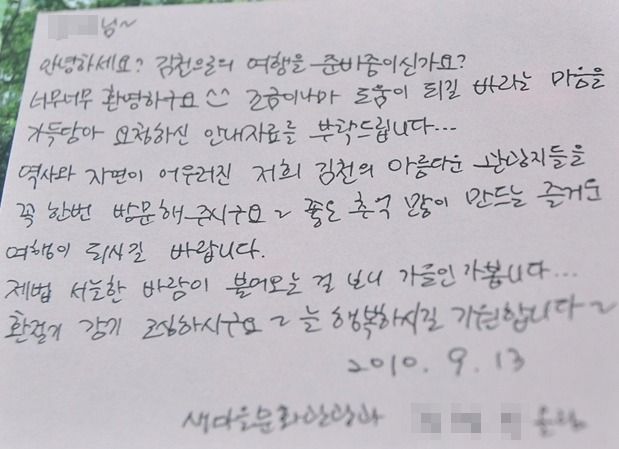 님~
안녕하세요? 김천으로의 여행을 준비중이신가요?
너무너무 환영하구요 ^^ 조금이나마 도움이 되길 바라는 마음을
가득담아 요청하신 안내자료를 부탁드립니다...
역사와 자연이 어우러진 저희 김천의 아름다운 관광지들을
꼭 한번 방문해 주시구요~ 좋은 추억 많이 만드는 즐거운
여행이 되시길 바랍니다.
제법 서늘한 바람이 불어오는 걸 보니 가을인가봅니다...
환절기 감기 조심하시구요~ 늘 행복하시길 기원합니다~
2010. 9. 13
새마을문화관광과 올림